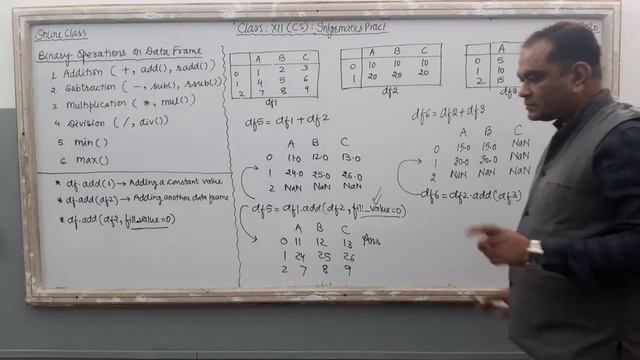 Online Class
Class: XII (CS): Informatics Pract
20
Binary Operations on Data Frame
1. Addition ( +, add(), radd())
2. Subtraction ( -, sub(), rsub())
3. Multiplication ( *, mul())
4 Division ( /, div())
5. min()
6. max()
* df.add(1) → Adding a constant value
* df.add(df2) → Adding another data frame
* df.add(df2, fill_value=0)
A B C
0 1 2 3
1 4 5 6
2 7 8 9
df1
A B C
0 10 10 10
1 20 20 20
df2
A
0 5
1 10
2 15
df3
df5 = df1 + df2
A B C
0 11.0 12.0 13.0
1 24.0 25.0 26.0
2 NaN NaN NaN
df5 = df1.add(df2, fill_value=0)
A B C
0 11 12 13 Ans
1 24 25 26
2 7 8 9
df6 = df2 + df3
A B C
0 15.0 15.0 NaN
1 30.0 30.0 NaN
2 NaN NaN NaN
df6 = df2.add(df3)